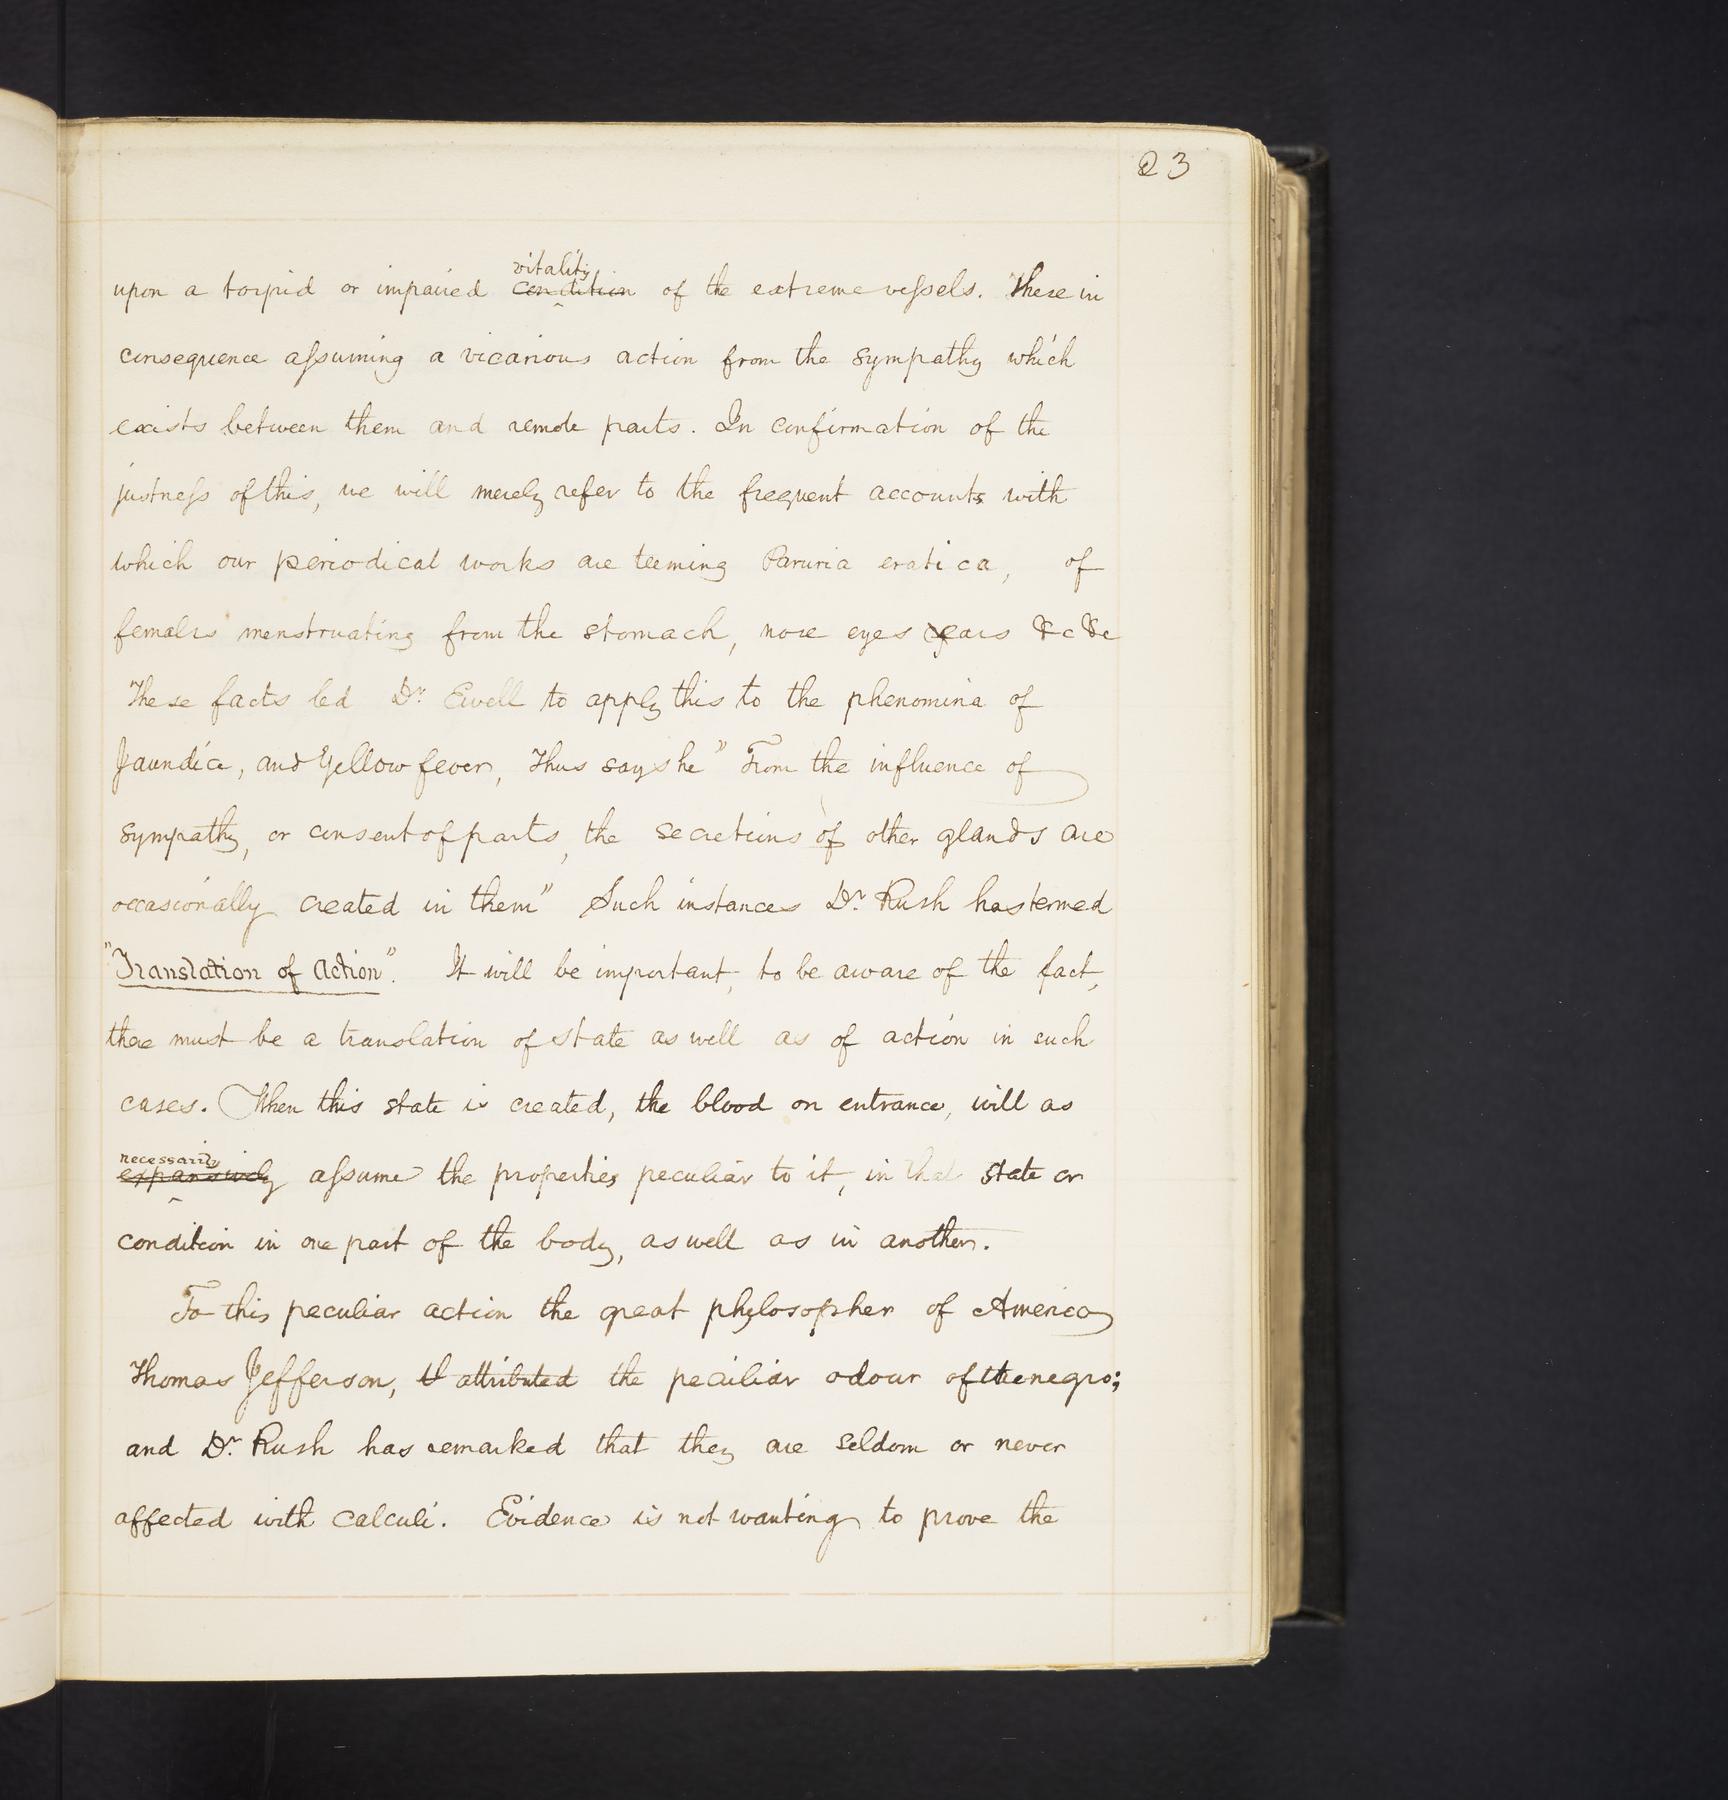 23
upon a torpid or impaired vitality condition of the extreme vessels. These in
consequence assuming a vicarious action from the sympathy which
exists between them and remote parts. In confirmation of the
justness of this, we will merely refer to the frequent accounts with
which our periodical works are teeming Paruria eratica, of
females menstruating from the stomach, nose eyes ears &c &c
These facts led Dr. Ewell to apply this to the phenomina of
Jaundice, and Yellow fever, Thus says he" From the influence of
sympathy, or consent of parts, the secretions of other glands are
occasionally created in them" Such instances Dr. Rush has termed
"Translation of Action". It will be important, to be aware of the fact,
there must be a translation of state as well as of action in such
cases. When this state is created, the blood on entrance, will as
necessarily expansively assume the properties peculiar to it, in that state or
condition in one part of the body, as well as in another.
To this peculiar action the great phylosopher of America
Thomas Jefferson, attributed the peculiar odour of the negro;
and Dr. Rush has remarked that they are seldom or never
affected with calculi. Evidence is not wanting to prove the